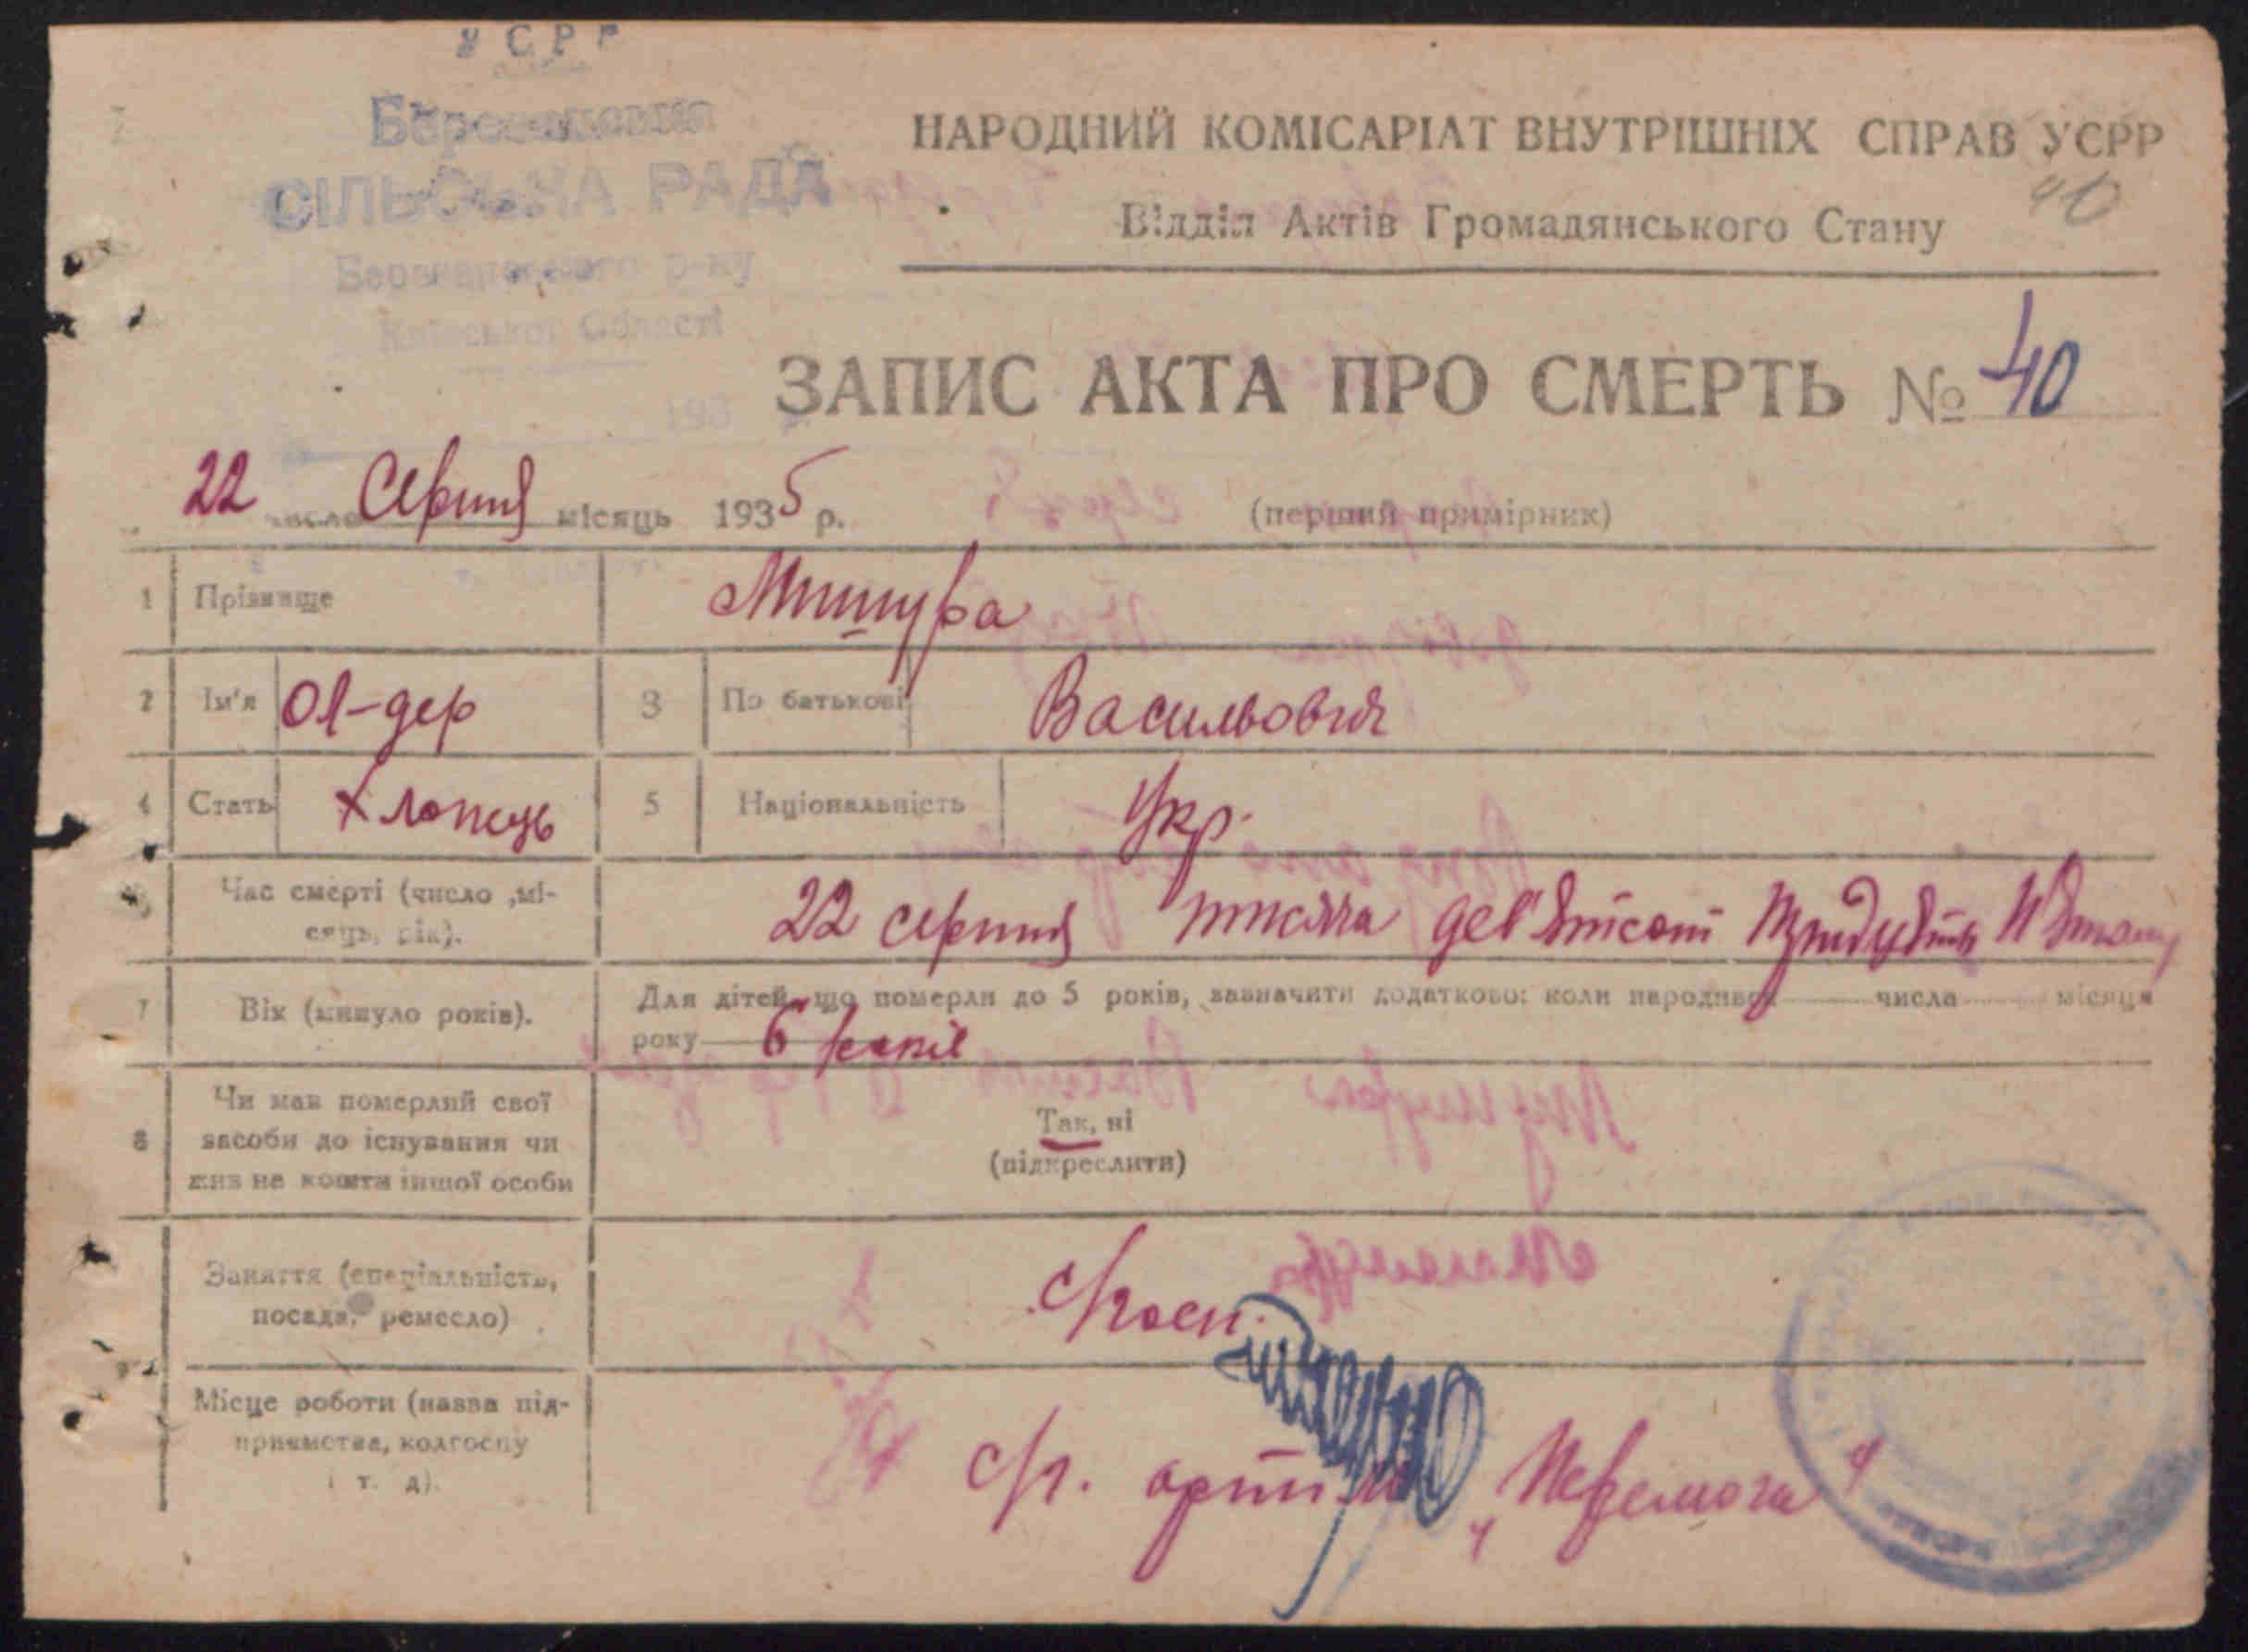 УСРР
СІЛЬСЬКА РАДА
р-ну
Київської Області
193
НАРОДНИЙ КОМІСАРІАТ ВНУТРІШНІХ СПРАВ УСРР
40
Відділ Актів Громадянського Стану
ЗАПИС АКТА ПРО СМЕРТЬ № 40
22 число Серпня місяць 1935 р. (перший примірник)
1 Прізвище Мишура
2 Ім'я Ол-дер 3 По батькові Васильович
4 Стать Хлопець 5 Національність Укр.
Час смерті (число ,мі-
сяць, рік).
22 серпня тисяча дев'ятсот тридцять п'ятого
7 Вік (минуло років).
Для дітей, що померли до 5 років, зазначити додатково: коли народився числа місяця
року 6 років
8 Чи мав померлий свої
засоби до існування чи
жив на кошти іншої особи
Так, ні
(підкреслити)
Заняття (спеціальність,
посада, ремесло)
с/госп.
Місце роботи (назва під-
приємства, колгоспу
і т. д).
с/г. артіль „Перемога"